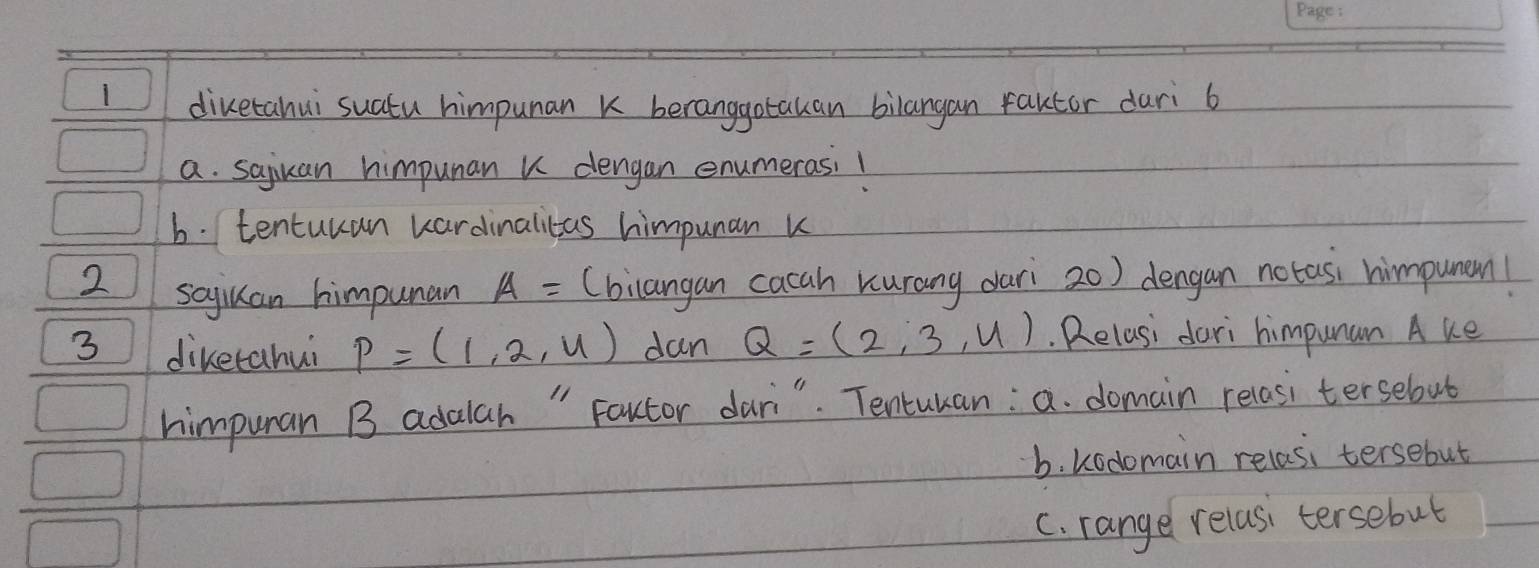 Page:
1 diketahui suatu himpunan K beranggotakan bilangan faktor dari 6
a. sajikan himpunan K dengan enumerasi!
b. tentukan kardinalitas himpunan K
2 sajikan himpunan A = (bilangan cacah kurang dari 20) dengan notasi himpunan!
3 diketahui P = (1, 2, 4) dan Q = (2, 3, 4). Relasi dari himpunan A ke
himpunan B adalah "Faktor dari". Tentukan: a. domain relasi tersebut
b. kodomain relasi tersebut
c. range relasi tersebut